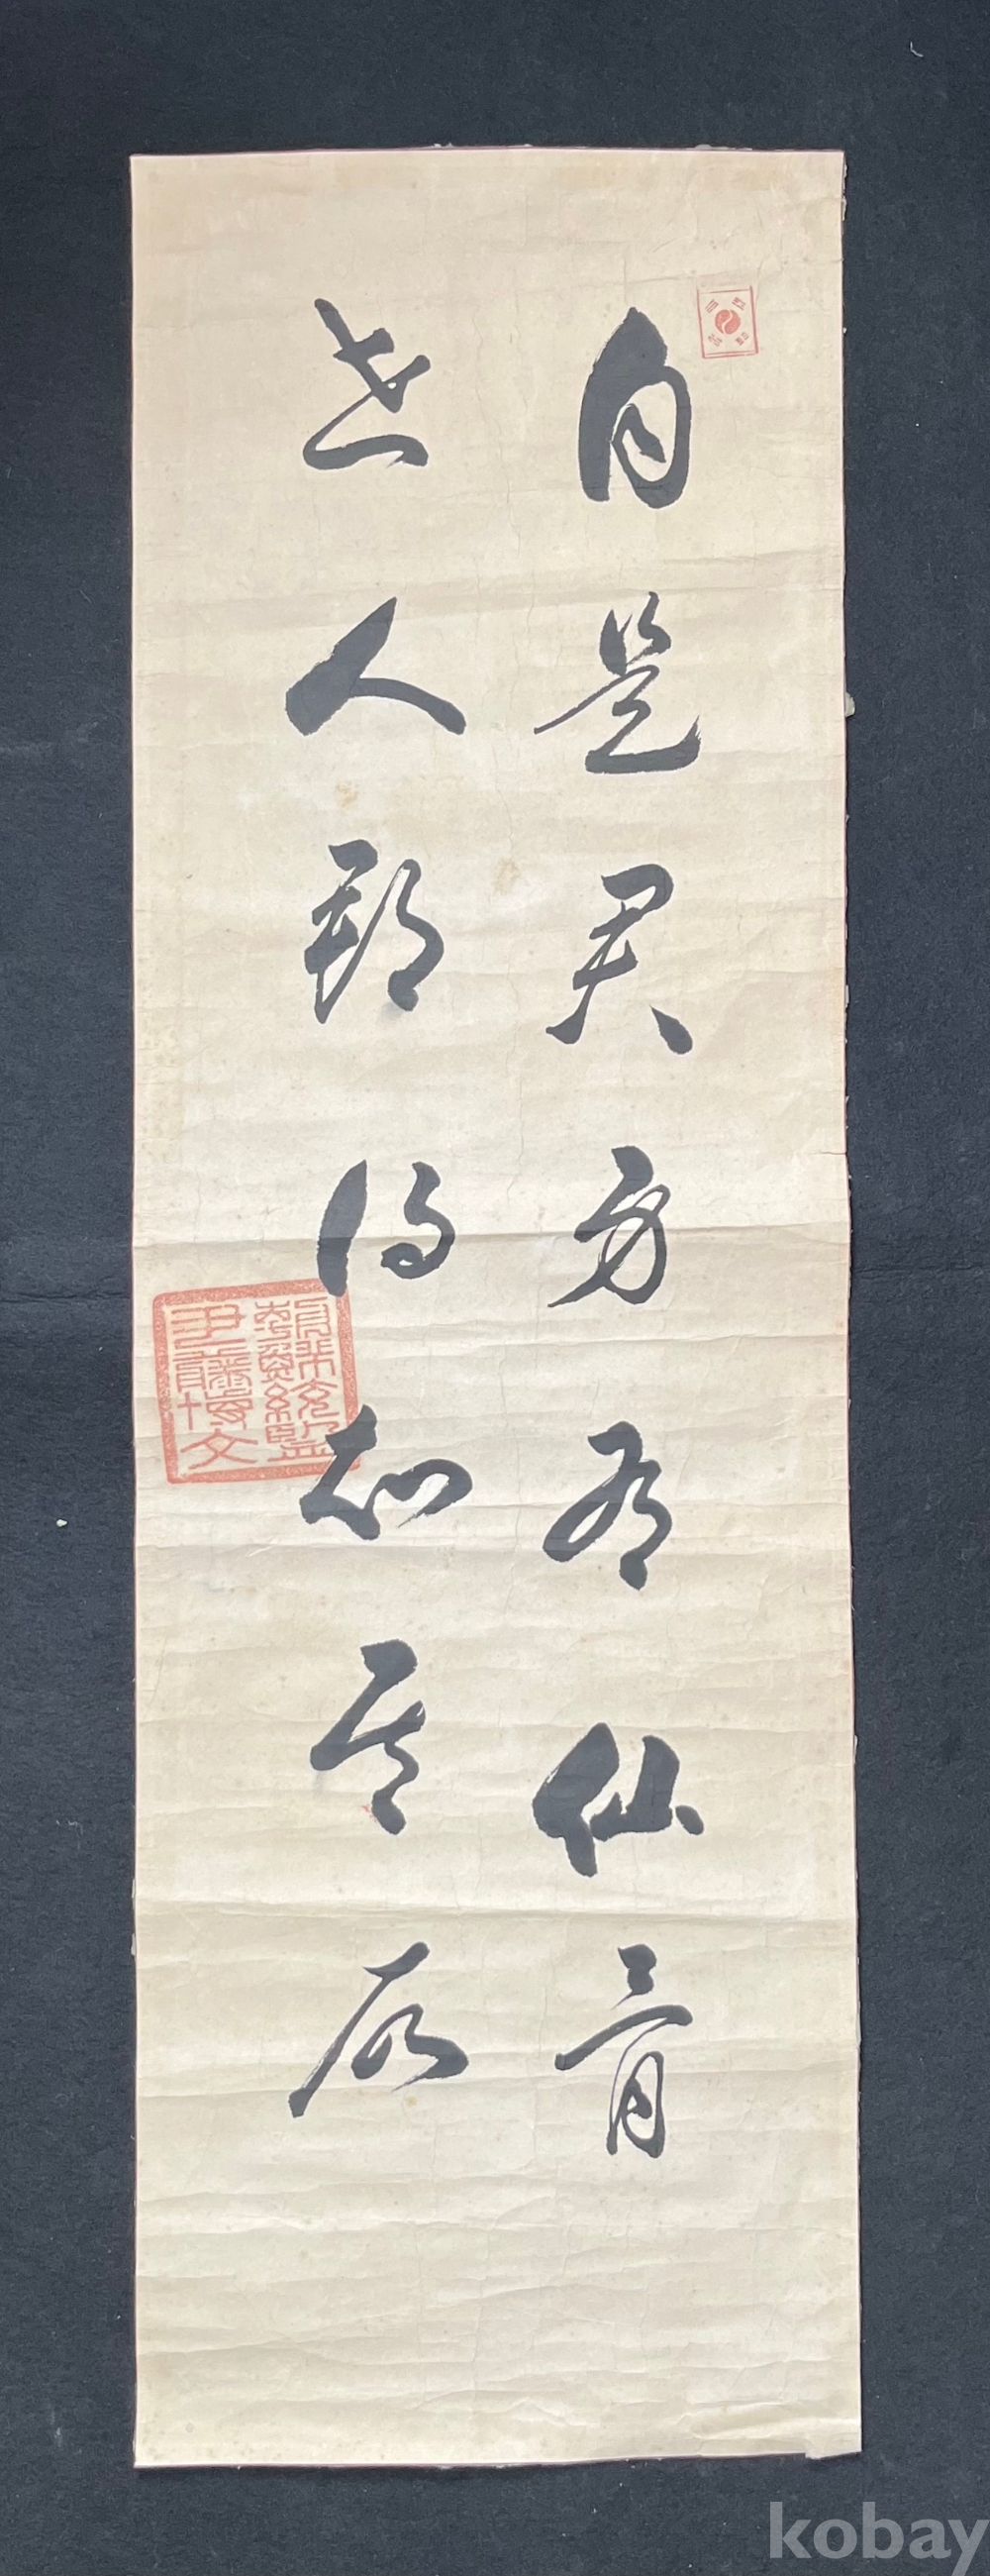 自是君身有仙骨
世人那得知其故
kobay